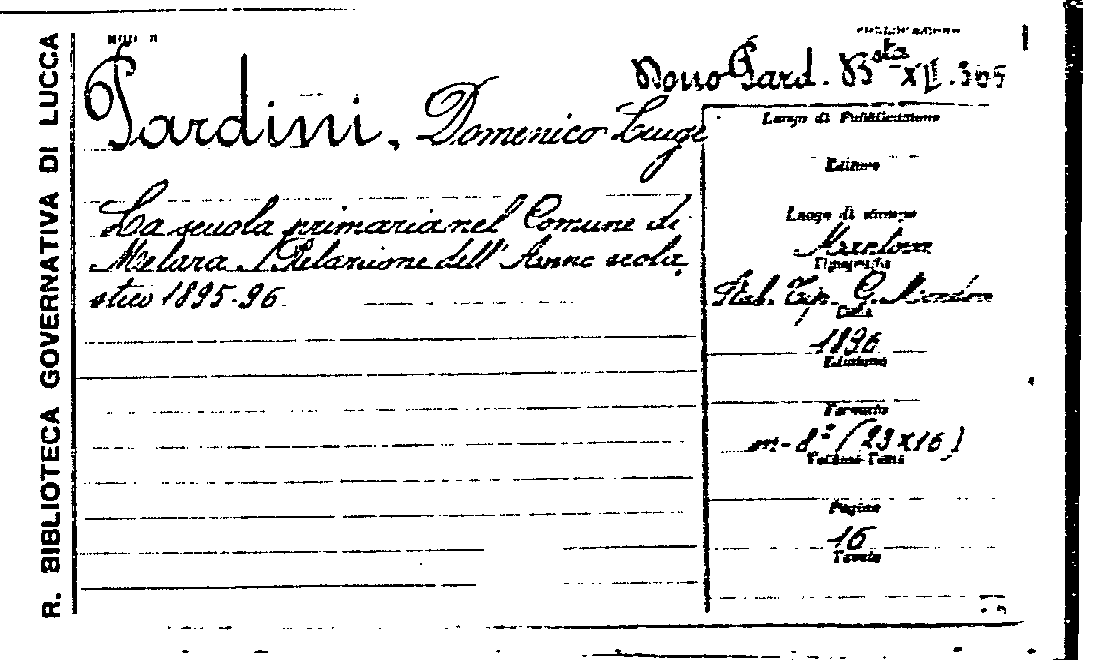 R. BIBLIOTECA GOVERNATIVA DI LUCCA
MOD.
Dono Pard. Bsta XII. 365
Pardini, Domenico Luigi
La scuola primaria nel Comune di
Melara. / Relazione dell' Anno scola,
stico 1895-96
Luogo di Pubblicazione
Editore
Luogo di stampa
Mantova
Tipografia
Stab. Tip. G. Mondovi
Data
1896
Edizione
Formato
in-8º (23x16)
Volumi-Tomi
Pagine
16
Tavole